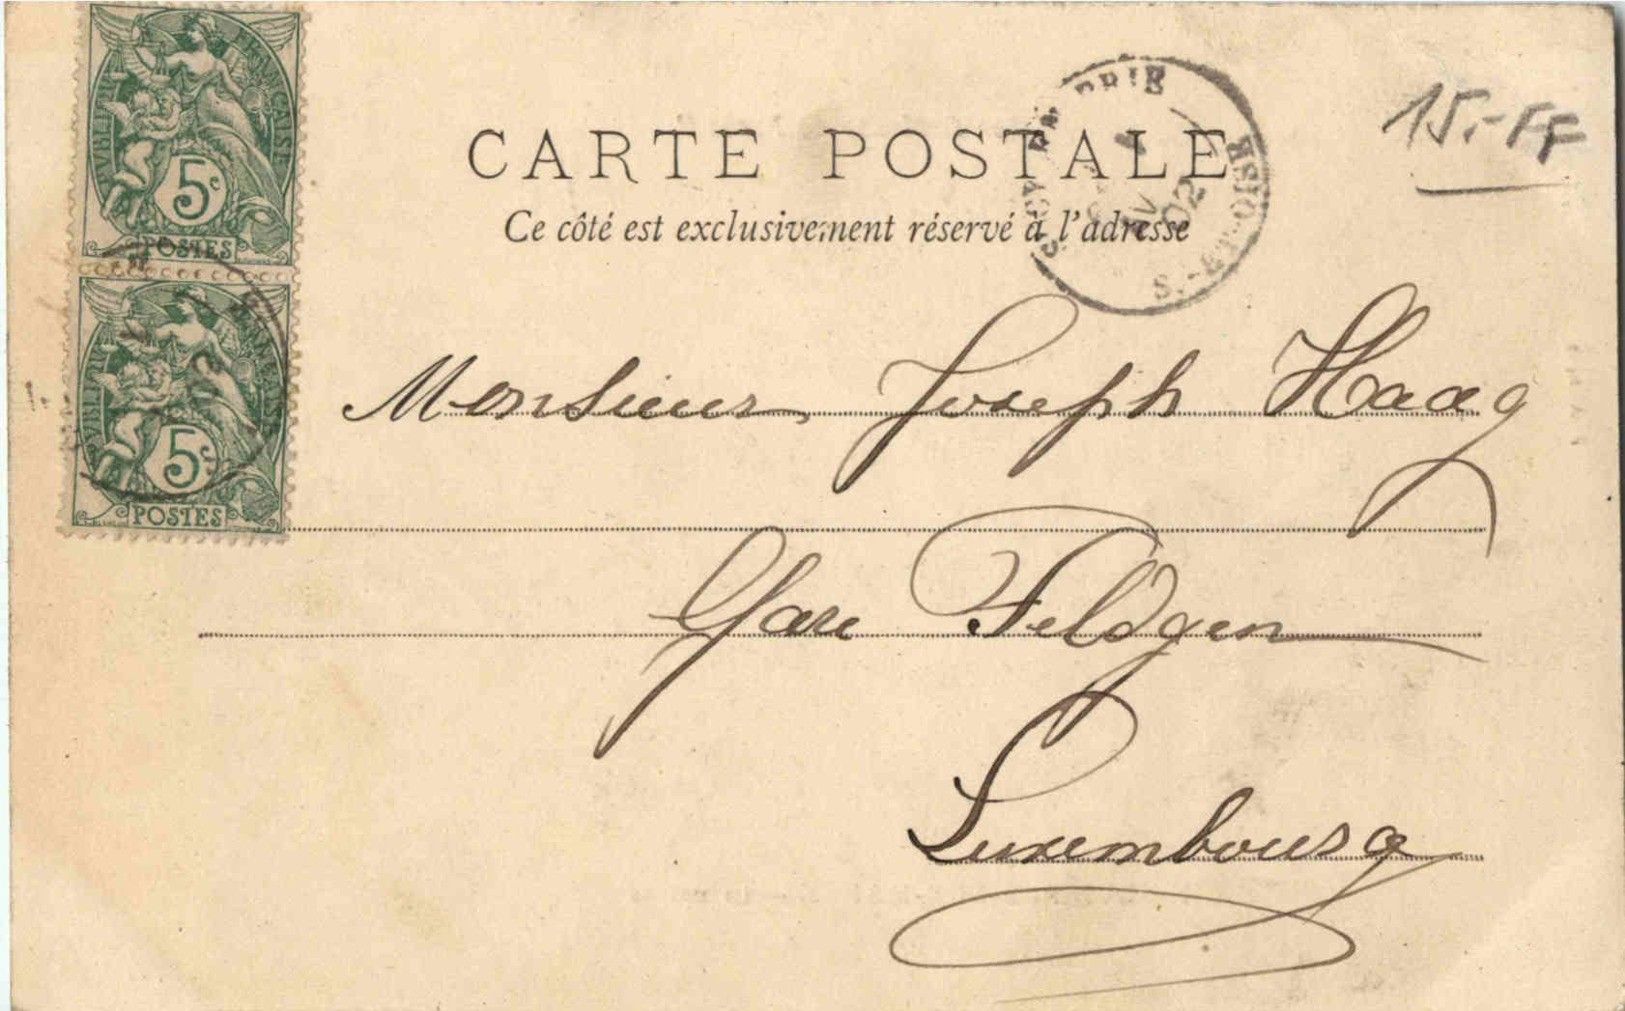 REPUBLIQUE FRANÇAISE
5c
POSTES
REPUBLIQUE FRANÇAISE
5c
POSTES
CARTE POSTALE
15.- FF
Ce côté est exclusivement réservé à l'adresse
02
S.-&-OISE
Monsieur Joseph Haag
Gare Feldgen
Luxembourg